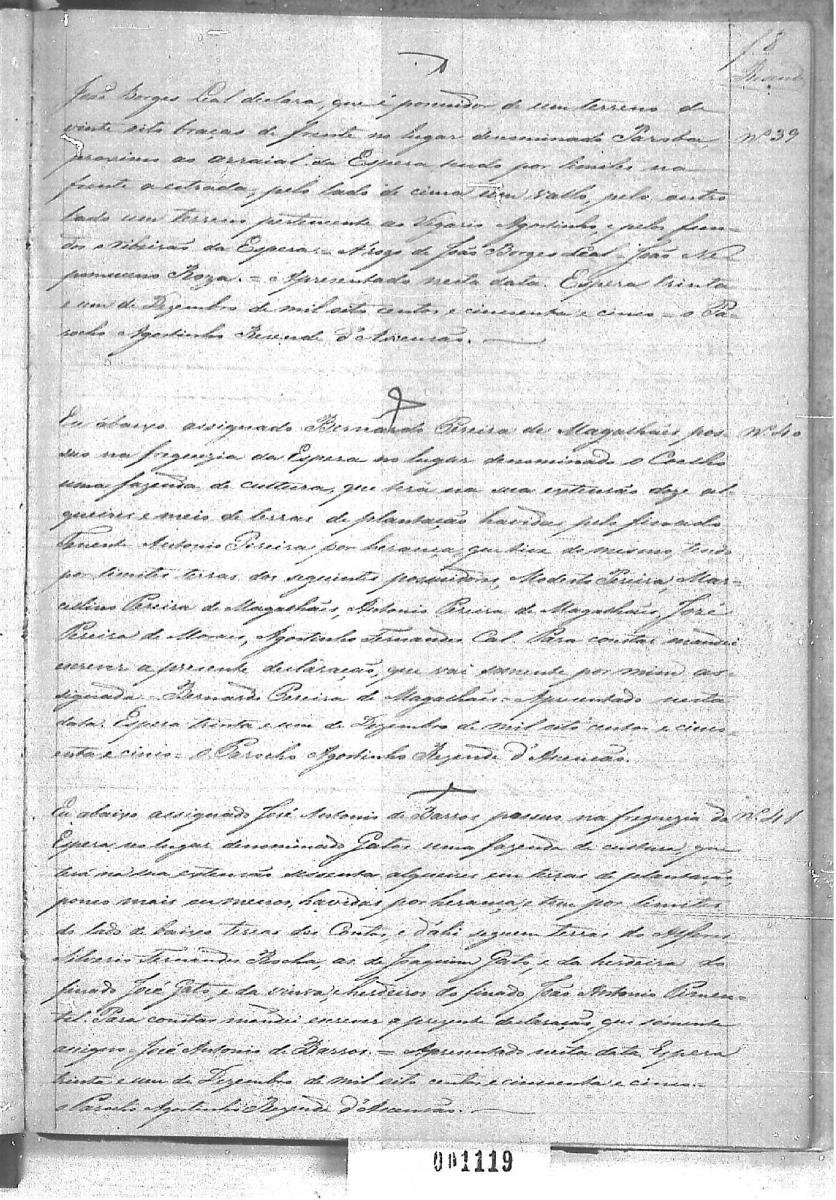 f 8
João Borges Leal declara, que é possuidor de um terreno de
vinte oito braças de frente no lugar denominado Paroba Nº 39
proximo ao arraial da Espera tendo por limites na
frente a estrada, pelo lado de cima um vallo, pelo outro
lado um terreno pertencente ao Vigario Agostinho, e pelos fun-
dos o ribeirão da Espera = A rogo de João Borges Leal = João Ne-
pomuceno Roza. = Apresentado nesta data. Espera trinta
e um de Dezembro de mil oito centos e cincoenta e cinco = o Pa-
rocho Agostinho Rezende d'Ascensão.
Eu abaixo assignado Bernardo Pereira de Magalhães pos- Nº 40
suo na freguezia da Espera no lugar denominado o Coelho
uma fazenda de cultura, que terá na sua extensão doze al-
queires e meio de terras de plantação havidas pelo finado
Tenente Antonio Pereira, por herança, que tive do mesmo, tendo
por limites terras dos seguintes possuidores, Modesto Pereira, Mar-
cellino Pereira de Magalhães, Antonio Pereira de Magalhães, José
Pereira de Moraes, Agostinho Fernandes Cal. Para constar mandei
escrever a presente declaração, que vai somente por mim as-
signada = Bernardo Pereira de Magalhães = Apresentado nesta
data. Espera trinta e um de Dezembro de mil oito centos e cinco-
enta e cinco = o Parocho Agostinho Rezende d'Ascensão.
Eu abaixo assignado José Antonio de Barros, possuo na freguezia da Nº 41
Espera, no lugar denominado Gatos uma fazenda de cultura, que
terá na sua extensão sessenta alqueires em terras de plantação
pouco mais ou menos, havidas por herança, e tem por limites
do lado de baixo terras dos Contos, e d'ahi seguem terras do
Silverio Fernandes Rocha, as de Joaquim Gato, e da herdeira do
finado José Gato, e da viuva, e herdeiros do finado João Antonio Pimen-
tel. Para constar mandei escrever a prezente declaração, que sómente
assigno = José Antonio de Barros. = Apresentado nesta data. Espera
trinta e um de Dezembro de mil oito centos e cincoenta e cinco. =
o Parocho Agostinho Rezende d'Ascensão.
001119